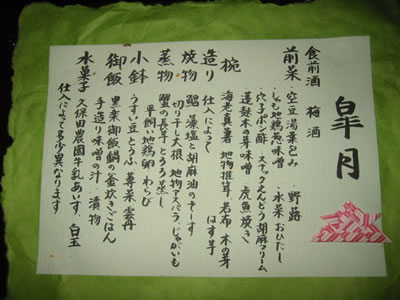 皐月
食前酒　梅酒
前菜・空豆湯葉包み　・野蕗
・しゃも地鶏葱味噌　・水菜おひたし
・穴子ポン酢・スナックえんどう胡麻クリーム
・蓬麩木の芽味噌・虎魚焼き
椀　海老真薯　地物椎茸　若布　木の芽
造り　仕入によって　はす芋
焼物　鰡藻塩と胡麻油のそーす
切り干し大根、地物アスパラ、じゃがいも
蒸物　蟹の長芋とろろ蒸し
小鉢　平飼い地鶏卵　わらび
うすい豆とうふ　蓴菜　雲丹
御飯　黒楽御飯鍋の釜炊きごはん
手造り味噌の汁・漬物
水菓子　久保田農園牛乳あいす、白玉
仕入によって多少異なります